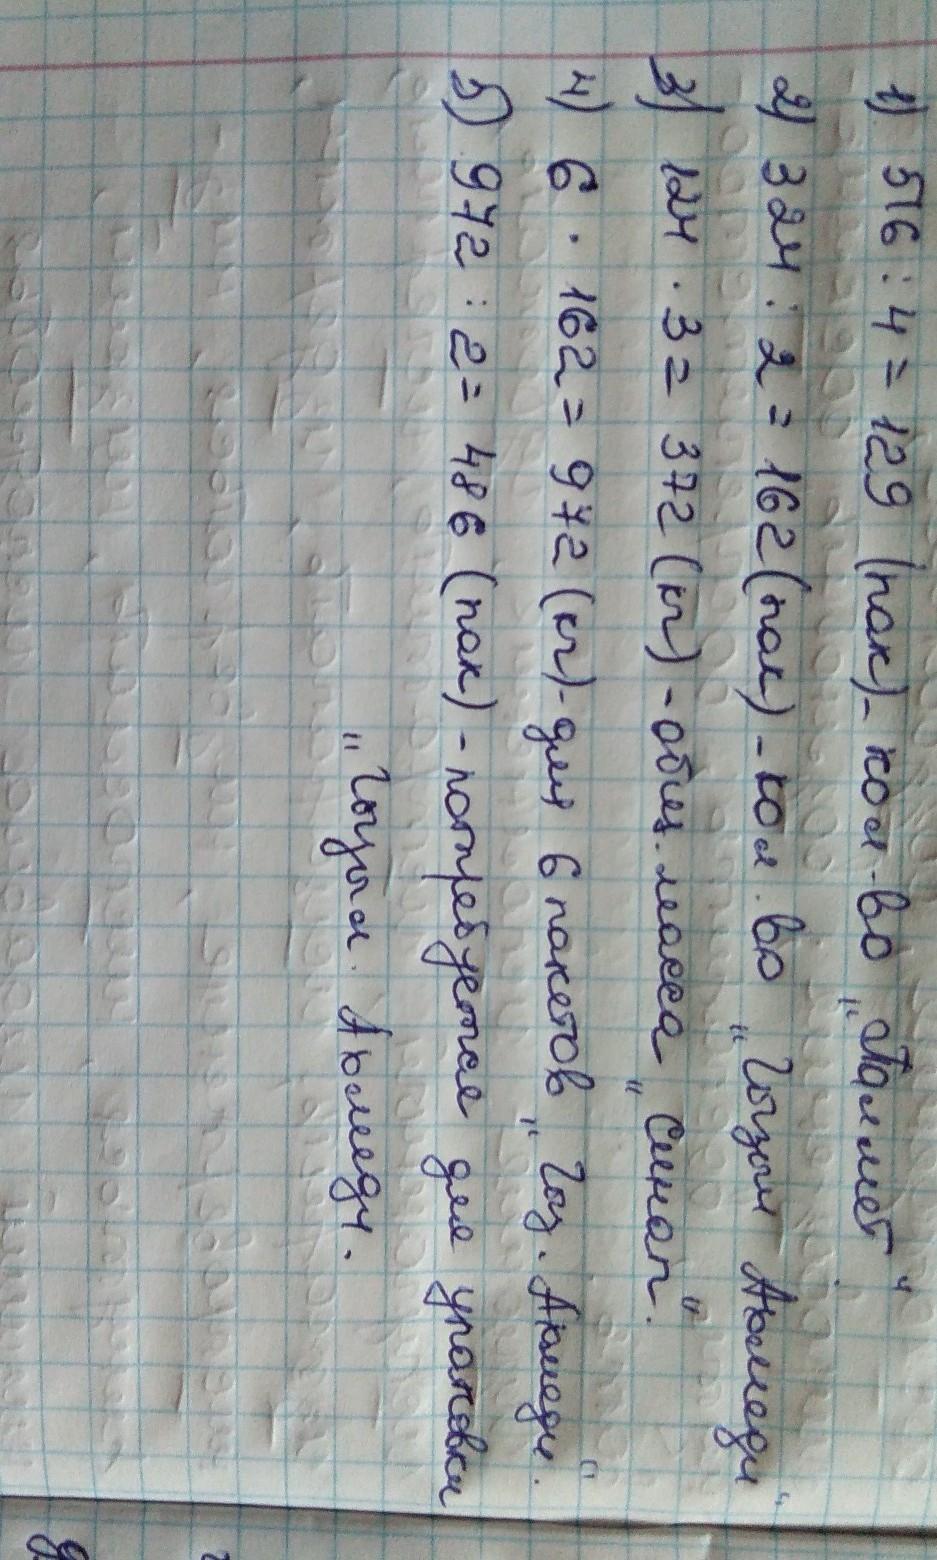 1) 516 : 4 = 129 (пак) - кол-во „Паммет"
2) 324 : 2 = 162 (пак) - кол. во „Гызыл Ахмеди"
3) 124 · 3 = 372 (кг) - общ. масса „Синап".
4) 6 · 162 = 972 (кг) - для 6 пакетов „Гыз. Ахмеди".
5) 972 : 2 = 486 (пак) - потребуется для упаковки
„Гызыл. Ахмеди.